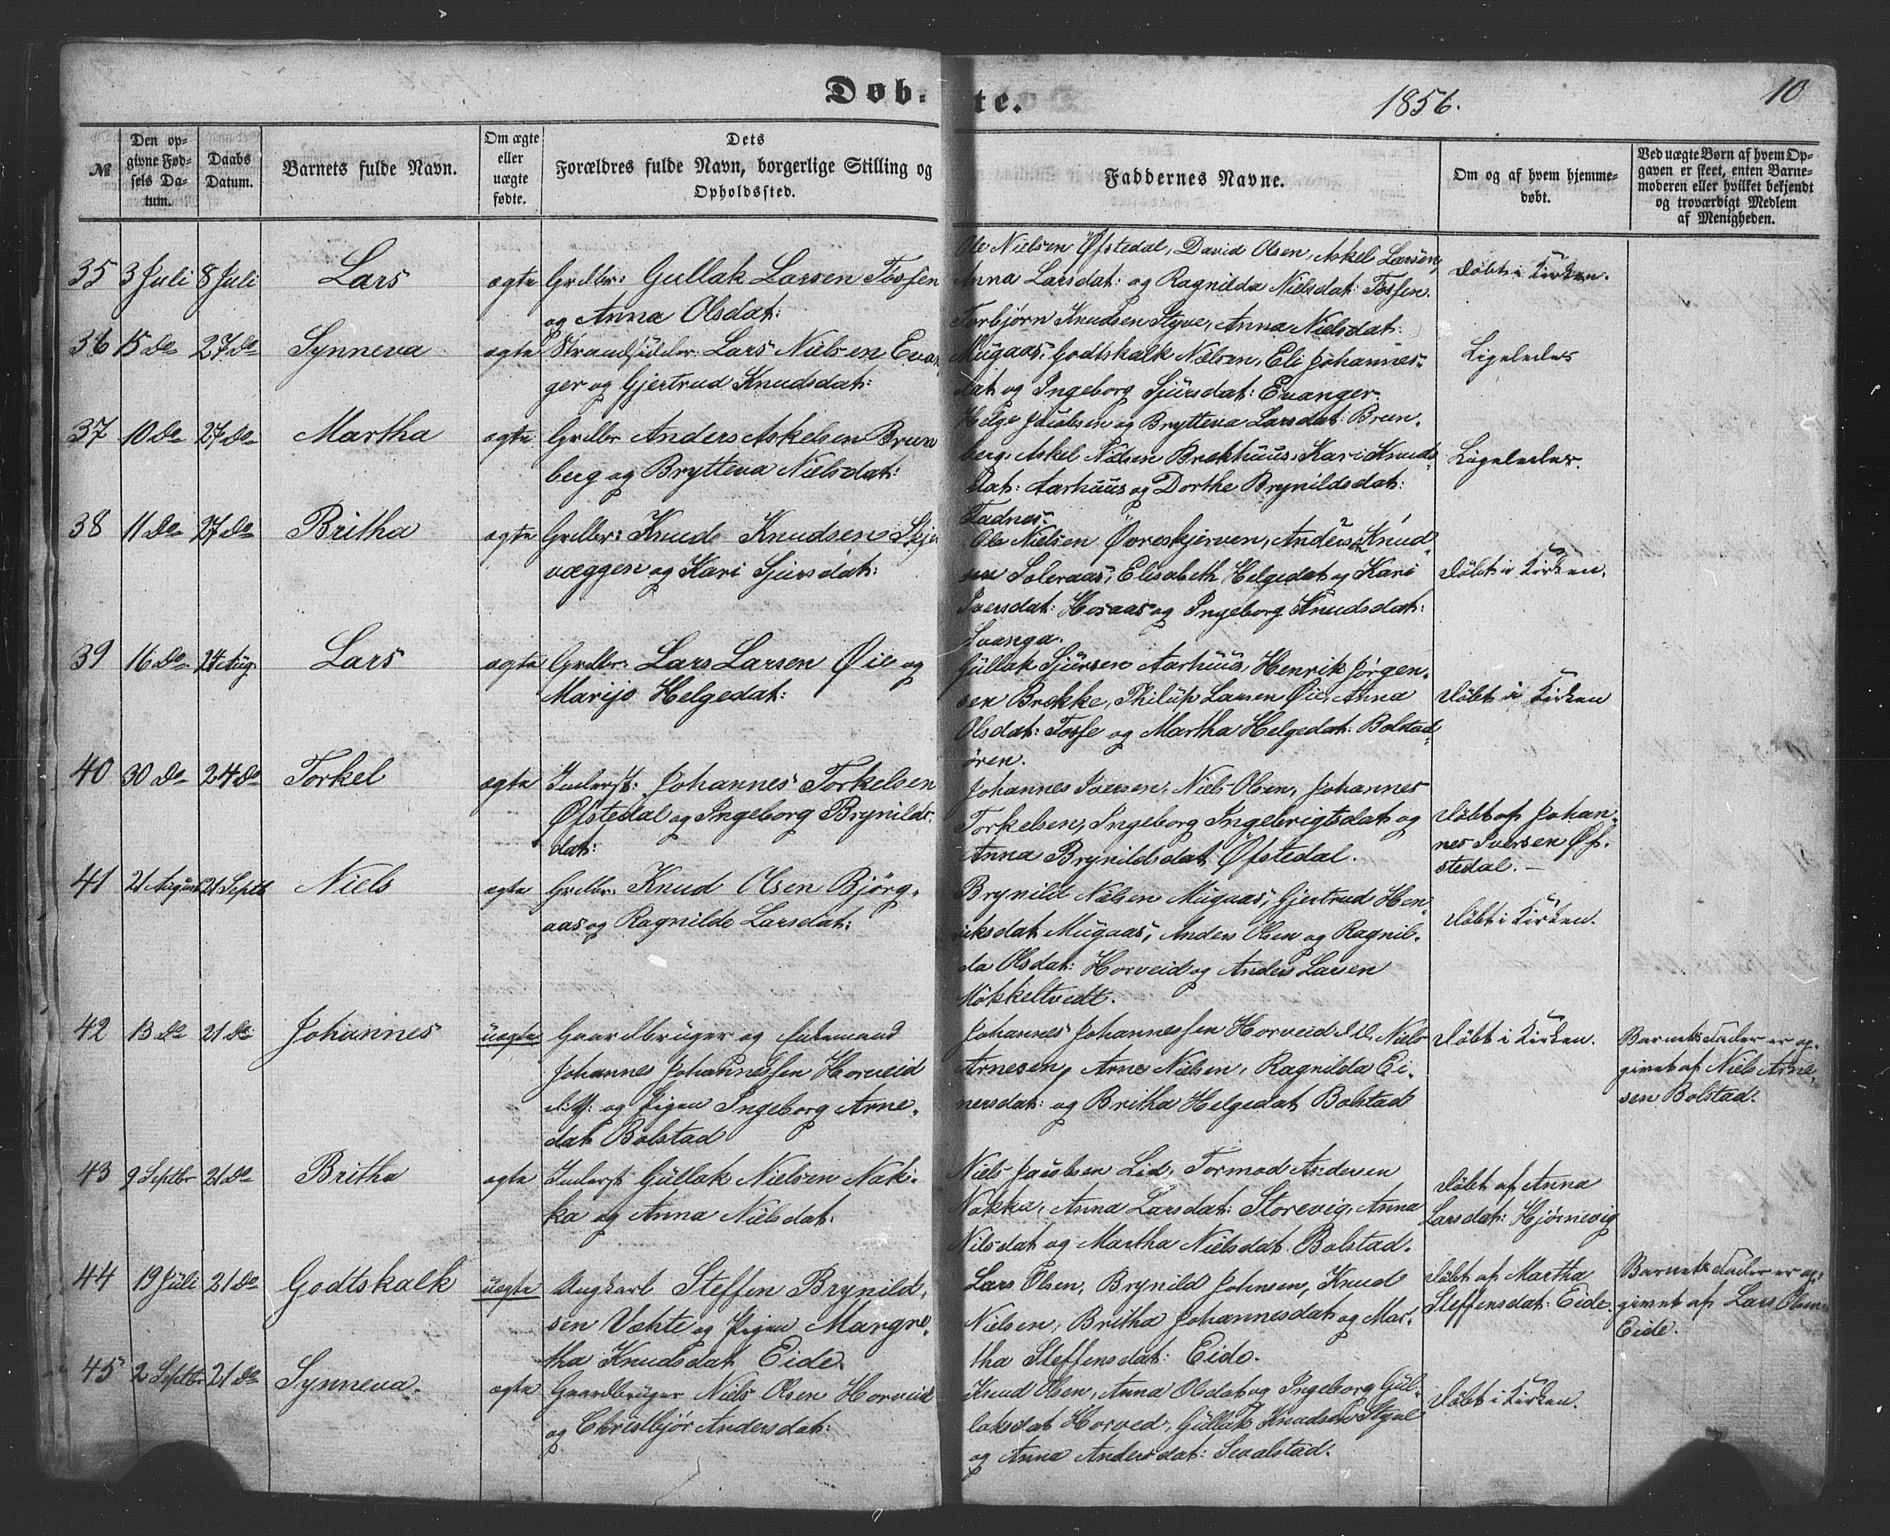 Døbte.
1856.
10
№
Den opgivne Fødsels Datum.
Daabs Datum.
Barnets fulde Navn.
Om ægte eller uægte fødte.
Dets Forældres fulde Navn, borgerlige Stilling og Opholdssted.
Faddernes Navne.
Om og af hvem hjemmedøbt.
Ved uægte Børn af hvem Opgaven er skeet, enten Barnemoderen eller hvilket bekjendt og troværdigt Medlem af Menigheden.
35 3 Juli 8 Juli Lars ægte Grdbr: Gullak Larsen Tosfen
og Anna Olsdat:
Ole Nielsen Øfstedal, David Olsen, Askel Larsen,
Anna Larsdat: og Ragnilda Nielsdat: Tosfen.
Døbt i Kirken.
36 15 Do 27 Do Synneva ægte Strandsidder Lars Nielsen Evan-
ger og Gjertrud Knudsdat:
Torbjørn Knudsen Styve, Anna Nielsdat:
Mügaas, Godtskalk Nielsen, Eli Johannes-
dat og Ingeborg Sjürsdat: Evanger.
Ligeledes
37 10 Do 27 Do Martha ægte Grdbr Anders Askelsen Brun
berg og Brytteva Nielsdat:
Helge Jacobsen og Brytteva Larsdat: Brun-
berg, Askel Nielsen Brekhuus, Kari Knuds-
dat: Aarhuus og Dorthe Brynildsdat:
Fadnes.
Ligeledes.
38 11 Do 27 Do Britha ægte Grdbr: Knud Knudsen Skje
væggen og Kari Sjursdat:
Ole Nielsen Øvreskjerven, Anders Knud-
sen Soleraas, Elisabeth Helgedat og Kari
Iversdat: Horaas og Ingeborg Knudsdat:
Svanga.
Døbt i Kirken.
39 16 Do 24 Aug. Lars ægte Grdbr: Lars Larsen Øie og
Marijo Helgedat:
Güllak Sjürsen Aarhüüs, Henrik Jørgen-
sen Brekke, Philip Larsen Øie, Anna
Olsdat: Tosfe og Martha Helgedat: Bolstad-
øren.
Døbt i Kirken
40 30 Do 24 Do Torkel ægte Inderst: Johannes Torkelsen
Øfstedal og Ingeborg Brynilds-
dat:
Johannes Iversen, Niels Olsen, Johannes
Torkelsen, Ingeborg Ingebrigtsdat og
Anna Brynildsdat Øfstedal.
Døbt af Johan-
nes Iversen Øf-
stedal. —
41 21 August 21 Septb Niels ægte Grdbr: Knud Olsen Bjørg-
aas og Ragnilde Larsdat:
Brynild Nielsen Mügaas, Gjertrud Hen-
riksdat Mügaas, Anders Olsen og Ragnil-
da Olsdat: Horveid og Anders Larsen
Møkkeltvedt.
Døbt i Kirken.
42 13 Do 21 Do Johannes uægte Gaardbruger og Enkemand
Johannes Johannessen Horveid
og Pigen Ingeborg Arne-
dat Bolstad
Johannes Johannessen Horveid Niels
Arnesen, Arne Nielsen, Ragnilda Ei-
nersdat: og Britha Helgedat Bolstad
Døbt i Kirken.
Barnets Fader er op-
givet af Niels Arne-
sen Bolstad.
43 9 Septbr 21 Do Britha ægte Inderst Güllak Nielsen Nak-
ka og Anna Nielsdat:
Niels Jacobsen Lid, Tormod Andersen
Nakka, Anna Larsdat: Storevig, Anna
Nilsdat og Martha Nielsdat Bolstad.
Døbt af Anna
Larsdat: Hjørnevig
44 19 Jüli 21 Do Godtskalk uægte Ungkarl Steffen Brynild-
sen Væhte og Pigen Margre-
tha Knudsdat Eide.
Lars Olsen, Brynild Johnsen, Knud
Nielsen, Britha Johannesdat og Mar-
tha Steffensdat: Eide.
Døbt af Martha
Steffensdat: Eide.
Barnets Fader er op-
givet af Lars Olsen
Eide.
45 2 Septbr 21 Do Synneva. ægte Gaardbruger Niels Olsen Horveid
og Christbjør Andersdat:
Knud Olsen, Anna Olsdat og Ingeborg Gül-
laksdat Horveid, Güllak Knudsen Styve
og Anna Andersdat: Sealstad.
Døbt i Kirken.